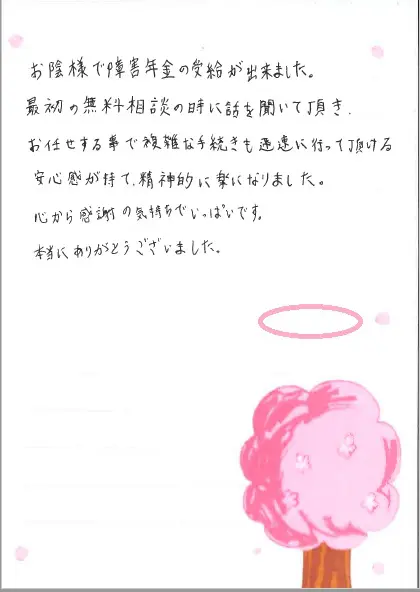 お陰様で障害年金の受給が出来ました。
最初の無料相談の時に話を聞いて頂き、
お任せする事で複雑な手続きも迅速に行って頂ける
安心感が持て、精神的に楽になりました。
心から感謝の気持ちでいっぱいです。
本当にありがとうございました。